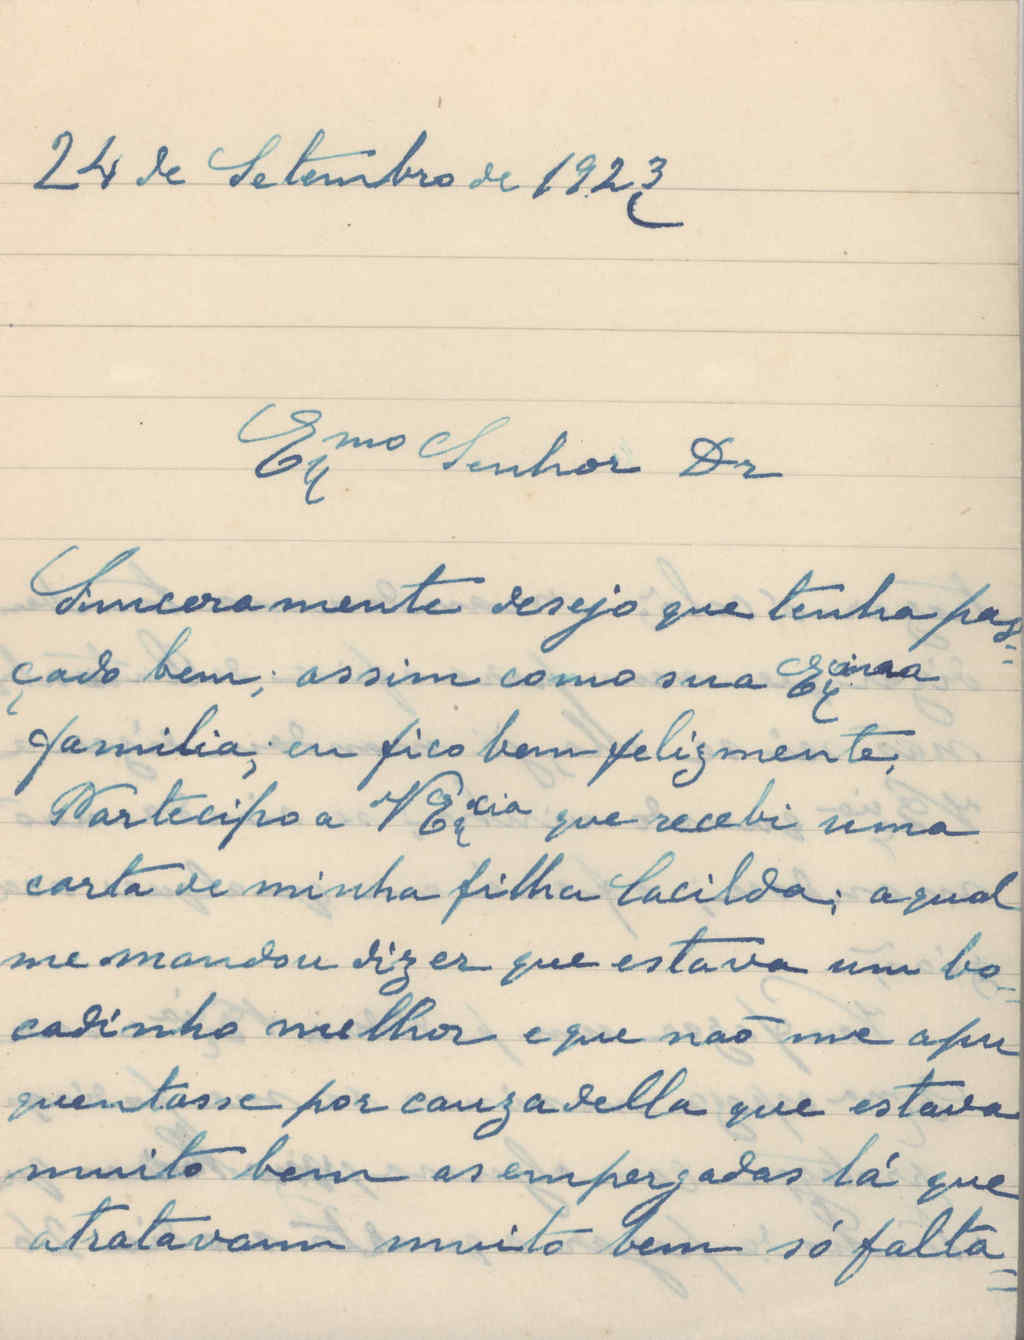 24 de Setembro de 1923
Exmo Senhor Dr
Sinceramente desejo que tenha pas=
çado bem; assim como sua Exima
familia; eu fico bem felizmente,
Partecipo a VExcia que recebi uma
carta de minha filha Cacilda; aqual
me mandou dizer que estava um bo=
cadinho melhor e que naõ me apu
quentasse por cauza della que estava
muito bem as empergadas lá que
atratavam muito bem só falta=